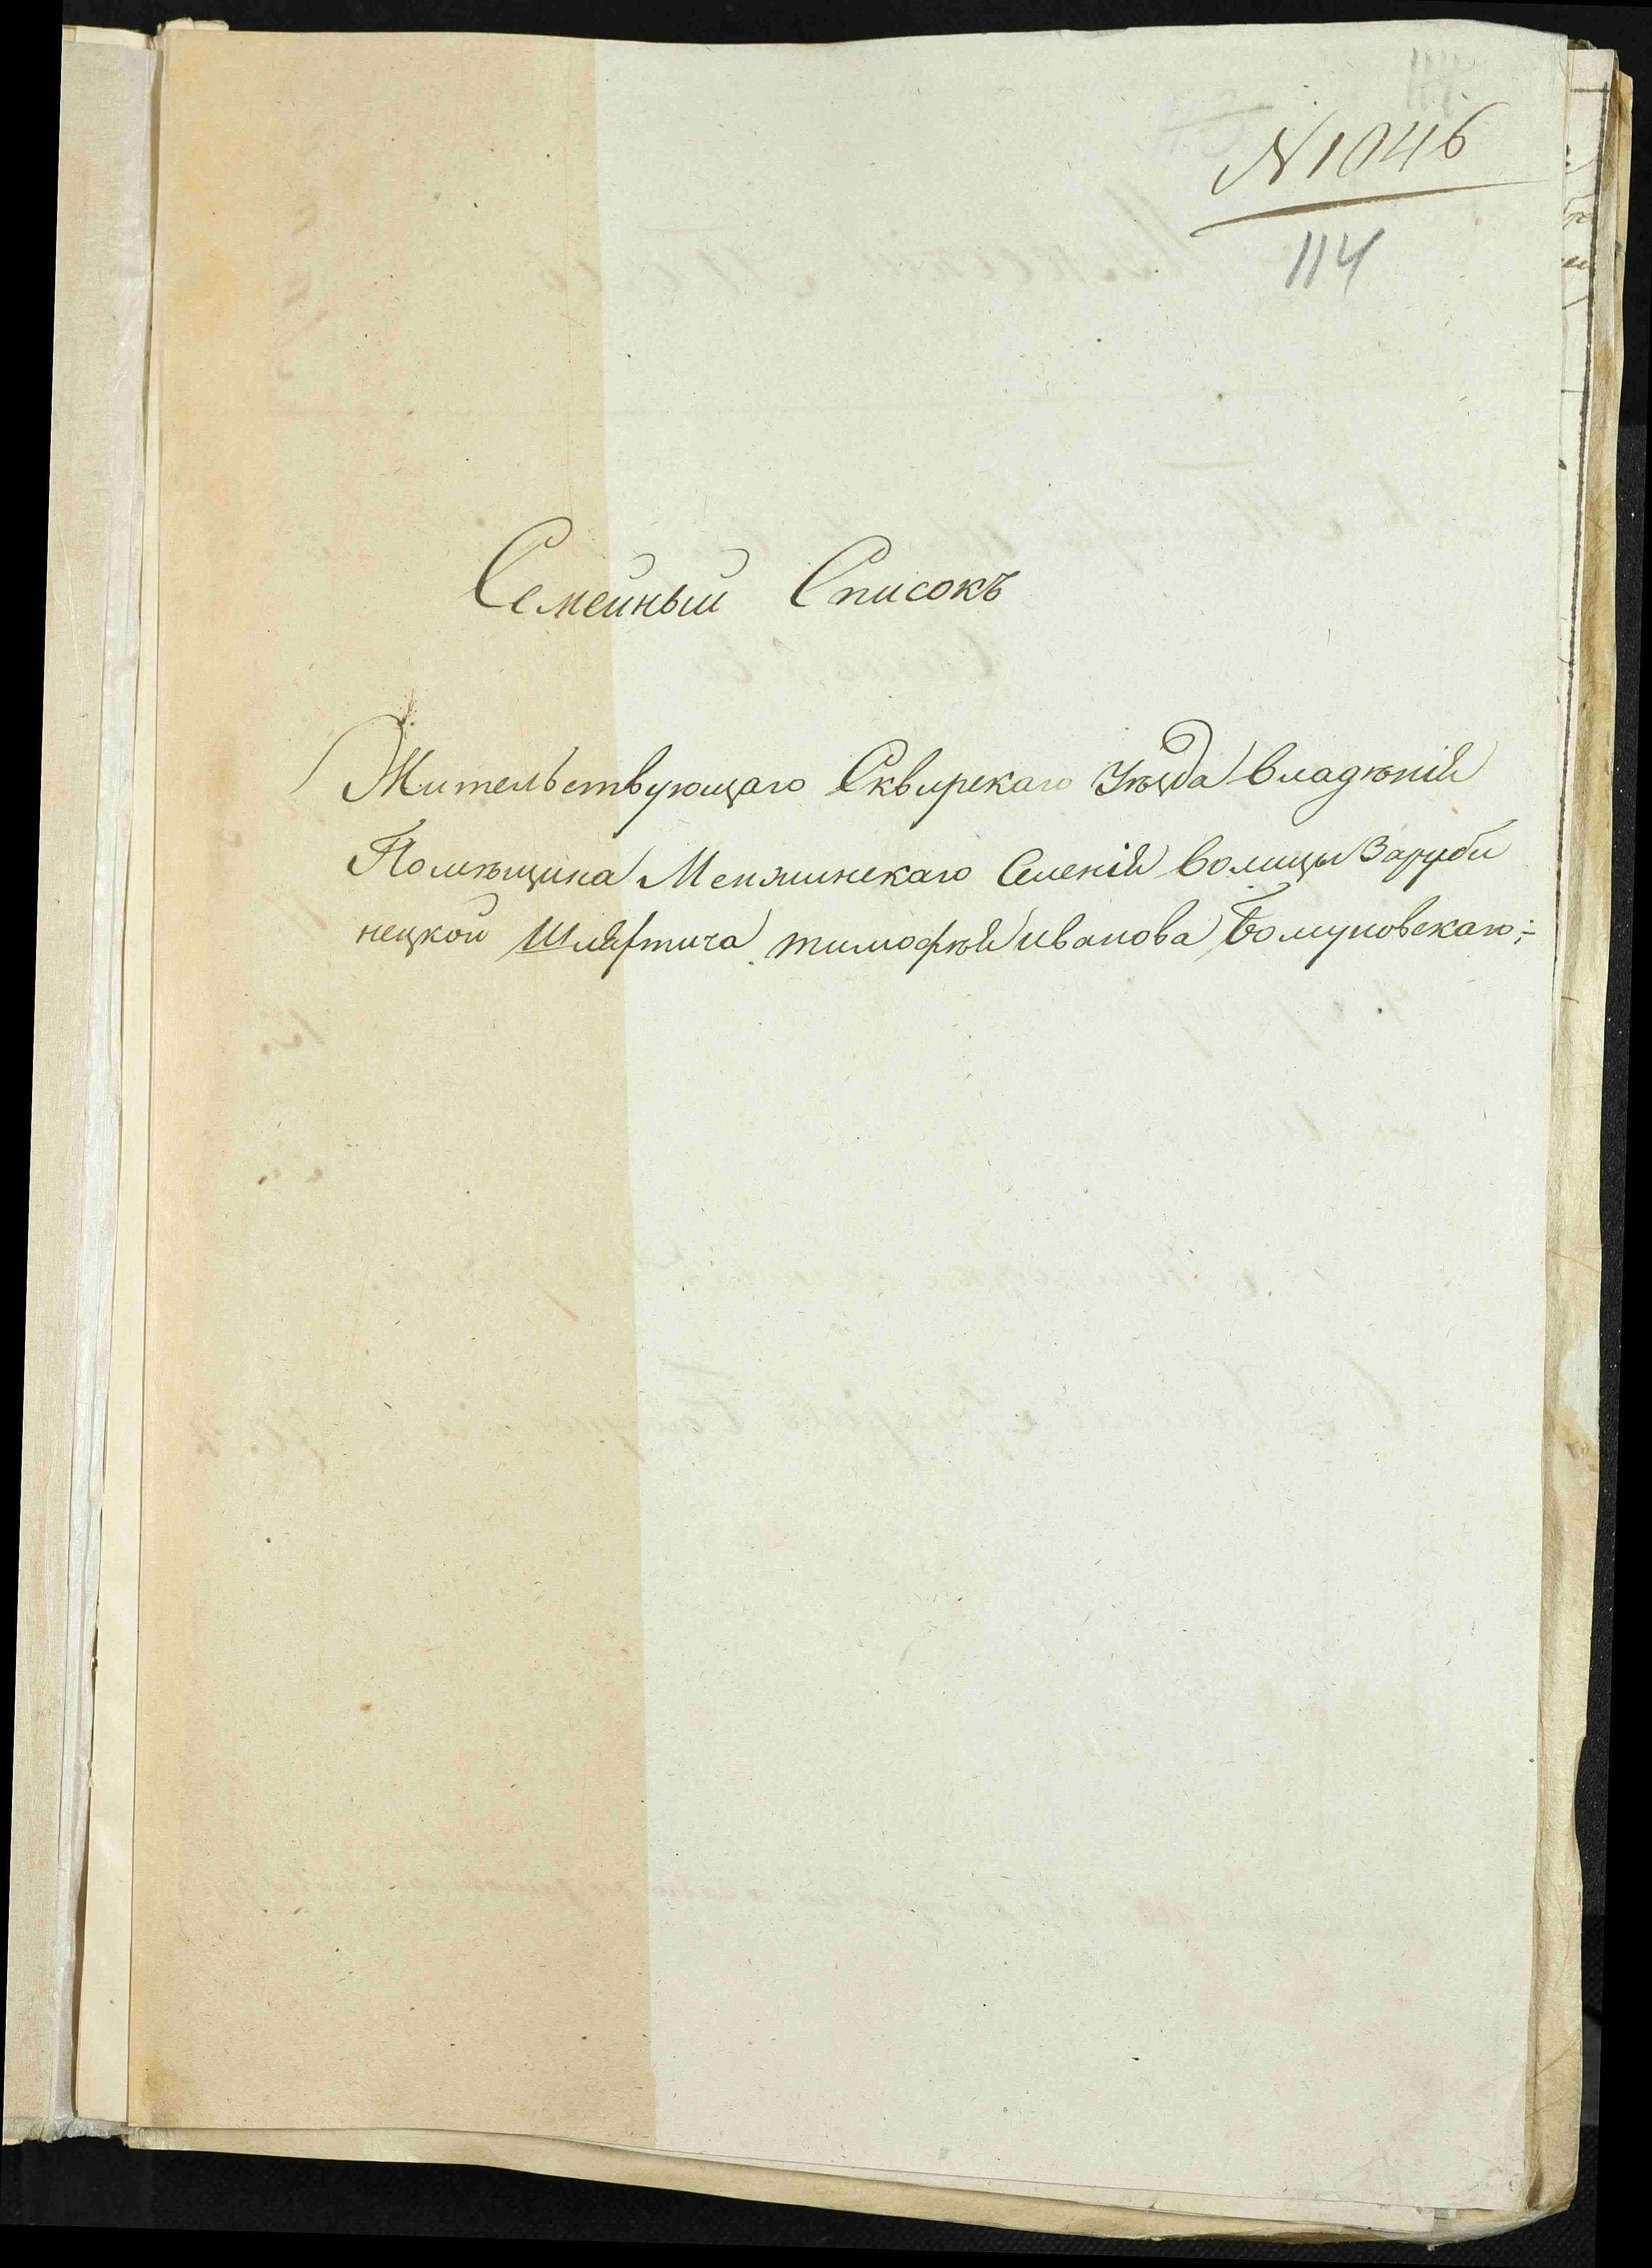 N 1046
114
Семейный Списокъ
Жительствующаго Сквирскаго Уѣзда владѣнія
Помѣщика Менжинскаго Селенія волицы Заруби
нецкой Шляхтича тимофѣя иванова Болуновскаго